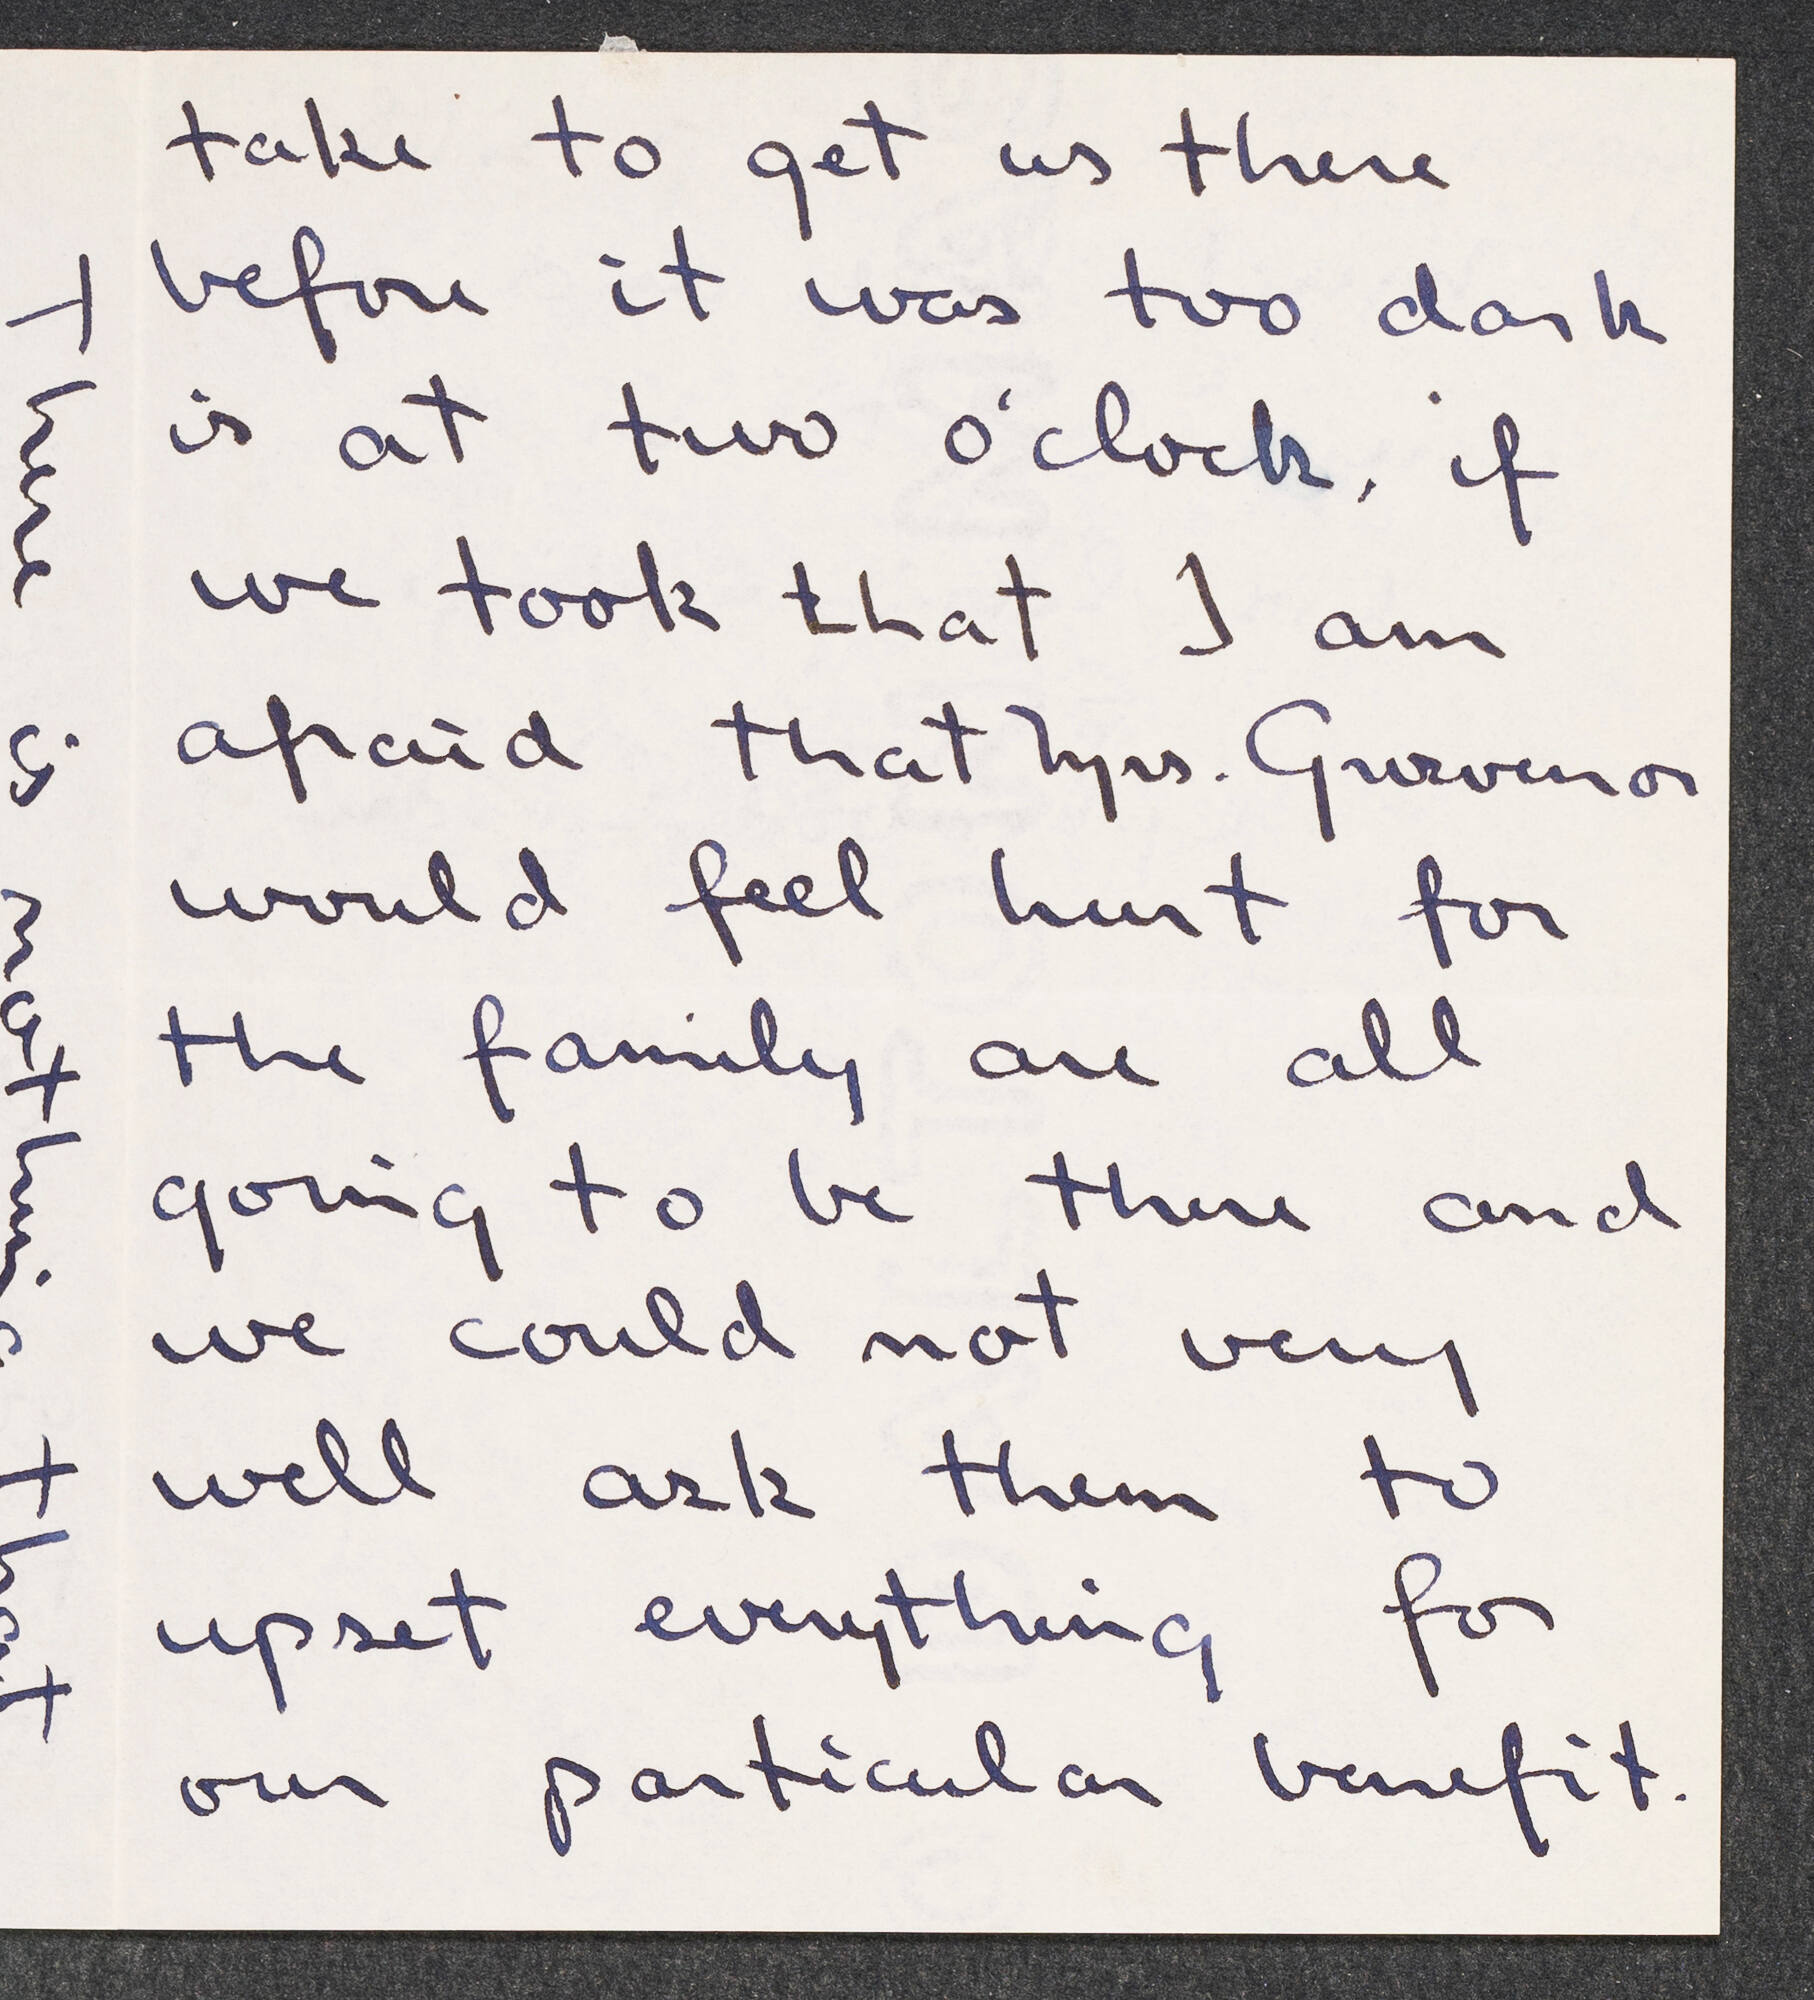 take to get us there
before it was too dark
is at two o'clock, if
we took that I am
afraid that Mrs. Grosvenor
would feel hurt for
the family are all
going to be there and
we could not very
well ask them to
upset everything for
our particular benefit.
There is nothing that